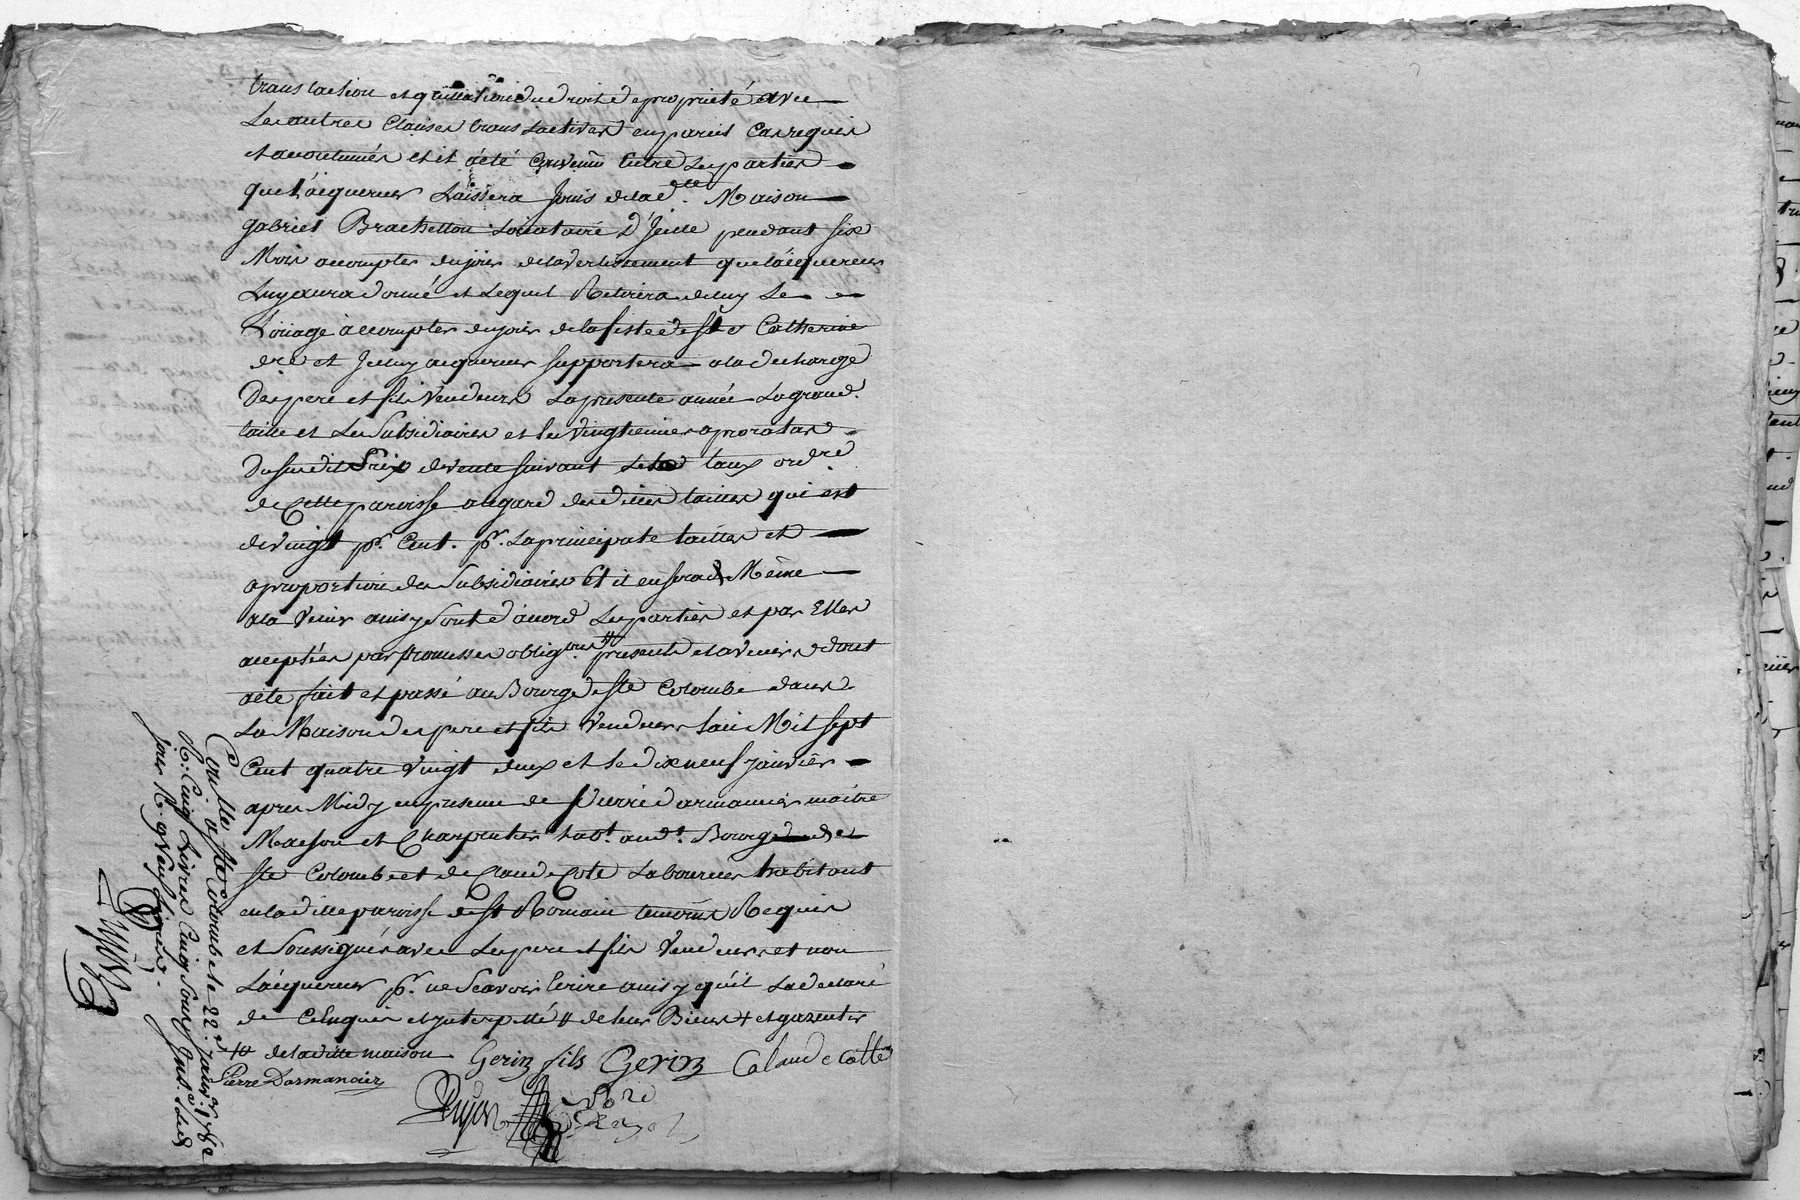 translation et quittation du droit de proprieté avec
Les autres Clauses translatives en pareil Cas requis
et accoutumés et il a été Convenu Entre Les parties
que L'acquereur Laissera Jouir de lad. Maison
gabriel Brachetton Locataire D'Icelle pendant six
Mois a compter du jour de l'avertissement que l'acquereur
Luy aura donné et Lequel Retirera de luy Le
Loüage à compter du jour de la feste de Ste Catherine
dre et Jceluy acquereur supportera a la decharge
Des pere et fils Vendeurs La presente année La grand.
taille et Les Subsidiaires et les vingtiemes aprorata
Du susdit Prix de vente suivant le taux ordre
de Cette paroisse a legard desdittes tailles qui est
de vingt pr. Cent. pr. La principale tailles et
a proportion des Subsidiaires Et il en sera de Même
a la Venir ainsy Sont d'acord Les parties et par Elles
acceptées par promesses obligons presents et avenir dont
acte fait et passé au Bourg de Ste Colombe dans
La Maison des pere et fils Vendeurs L'an Mil sept
Cent quatre vingt deux et le dix neuf janvier
apres Midy en presence de Pierre Darmancier maitre
Masson et Charpentier habt. aud. Bourg de
Ste Colombe et de Claude Cote Laboureur habitant
en laditte paroisse de St Romain temoins Requis
et Soussignés avec Les pere et fils Vendeurs et non
L'acquereur pr. ne Scavoir Ecrire ainsy qu'il La declaré
de Ce Enquis et Jnterpellé # de leurs Biens + et garentir
# de laditte maison
Gerin fils Gerin Calaude Cotte
Pierre Darmancier
Dujon
Con.lle a Ste Colombe le 22e. Janv.er 1782
R: Cinq Livres Cinq Sous Jns. led
jour R. 9 neuf livres.